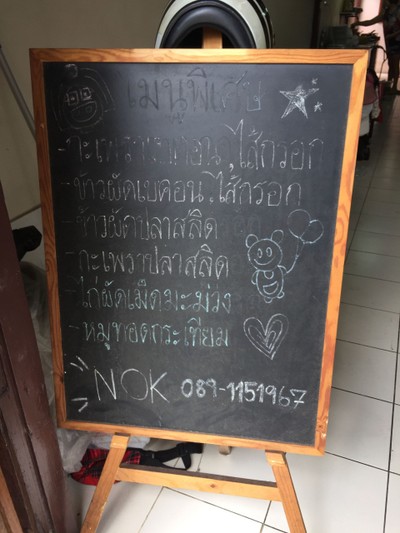 เมนูพิเศษ
-กะเพราเบคอน,ไส้กรอก
-ข้าวผัดเบคอน.ไส้กรอก
-ข้าวผัดปลาสลิด
-กะเพราปลาสลิด
-ไก่ผัดเม็ดมะม่วง
-หมูทอดกระเทียม
NOK 089-1151967